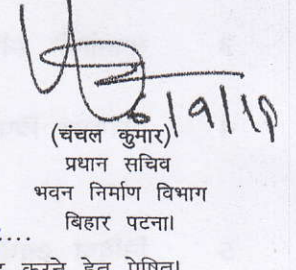 6/9/18
(चंचल कुमार)
प्रधान सचिव
भवन निर्माण विभाग
बिहार पटना।
....
करने हेतु प्रेषित।